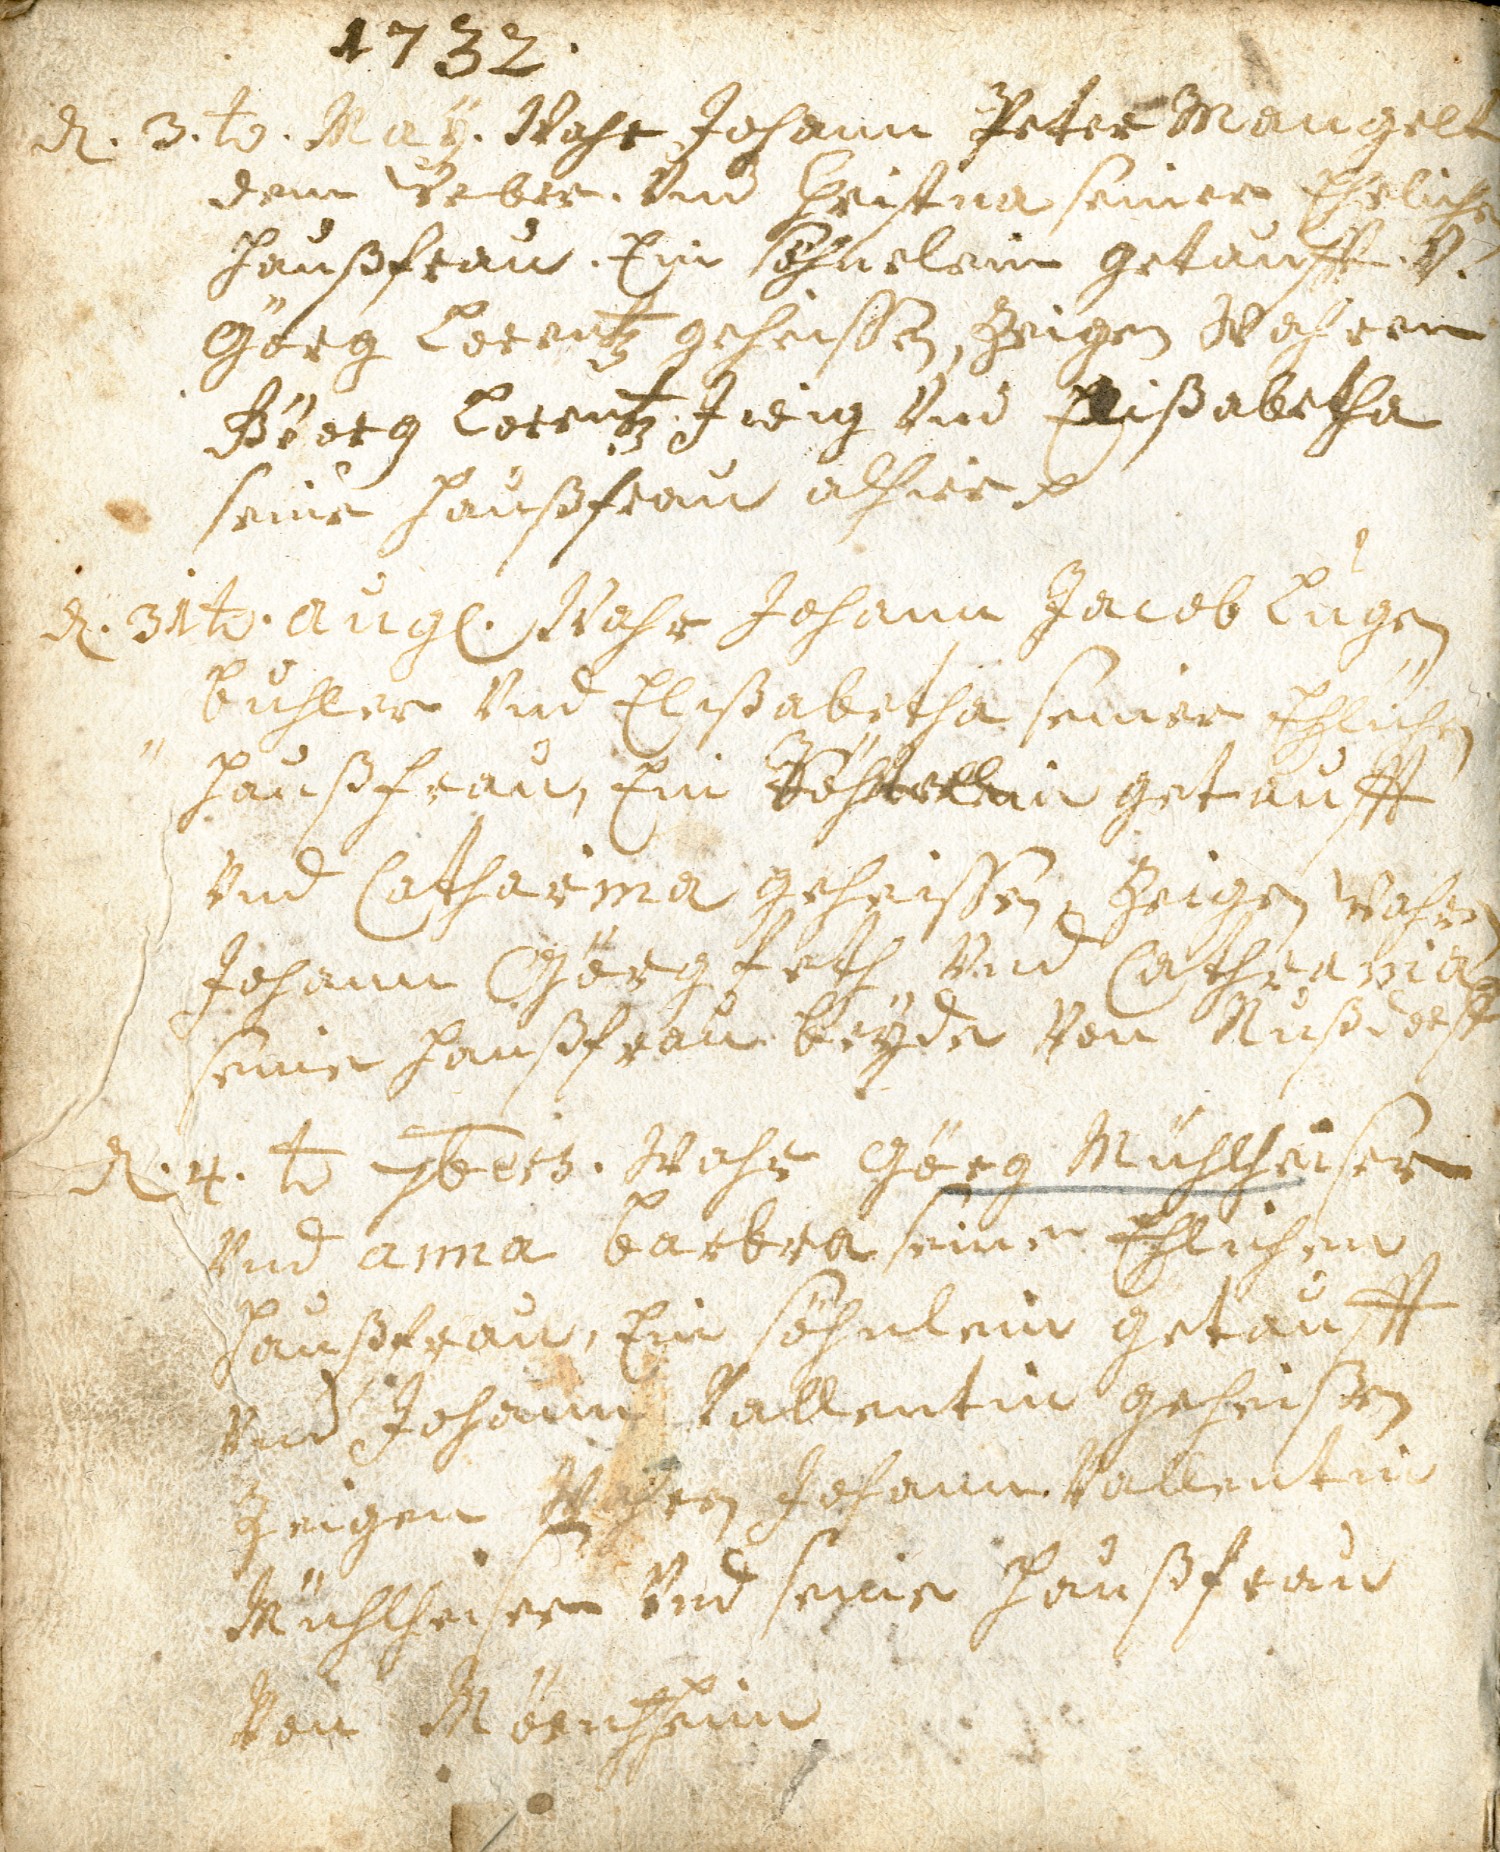 1732.
d. 3. t. May. Wahr Johann Peter Mangelt
dem Weber. Und Christna seiner Ehliche
haußfrau. Ein Söhnelein getaufft. V.
Görg Lorentz geheissen, Zeigen Wahren
Görg Lorentz Und Elißabetha
seine haußfrau alhier
d. 31t. aug. Wahr Johann Jacob Lugen
buhler Und Elißabetha seiner Ehlichen
haußfrau, Ein getaufft
Und Catharina geheissen, Zeigen Wahren
Johann Görg feth Und Catharina
seine haußfrau beÿde Von Nußdorff
d. 4. t 7bris. Wahr Görg Mühlheiser
Und anna barbra seiner Ehlichen
haußfrau, Ein söhnlein getaufft
Und Johann Vallentin geheißen
Zeigen Wahren Johann Vallentin
Mühlheiser Und seine haußfrau
Von Mörtzheim